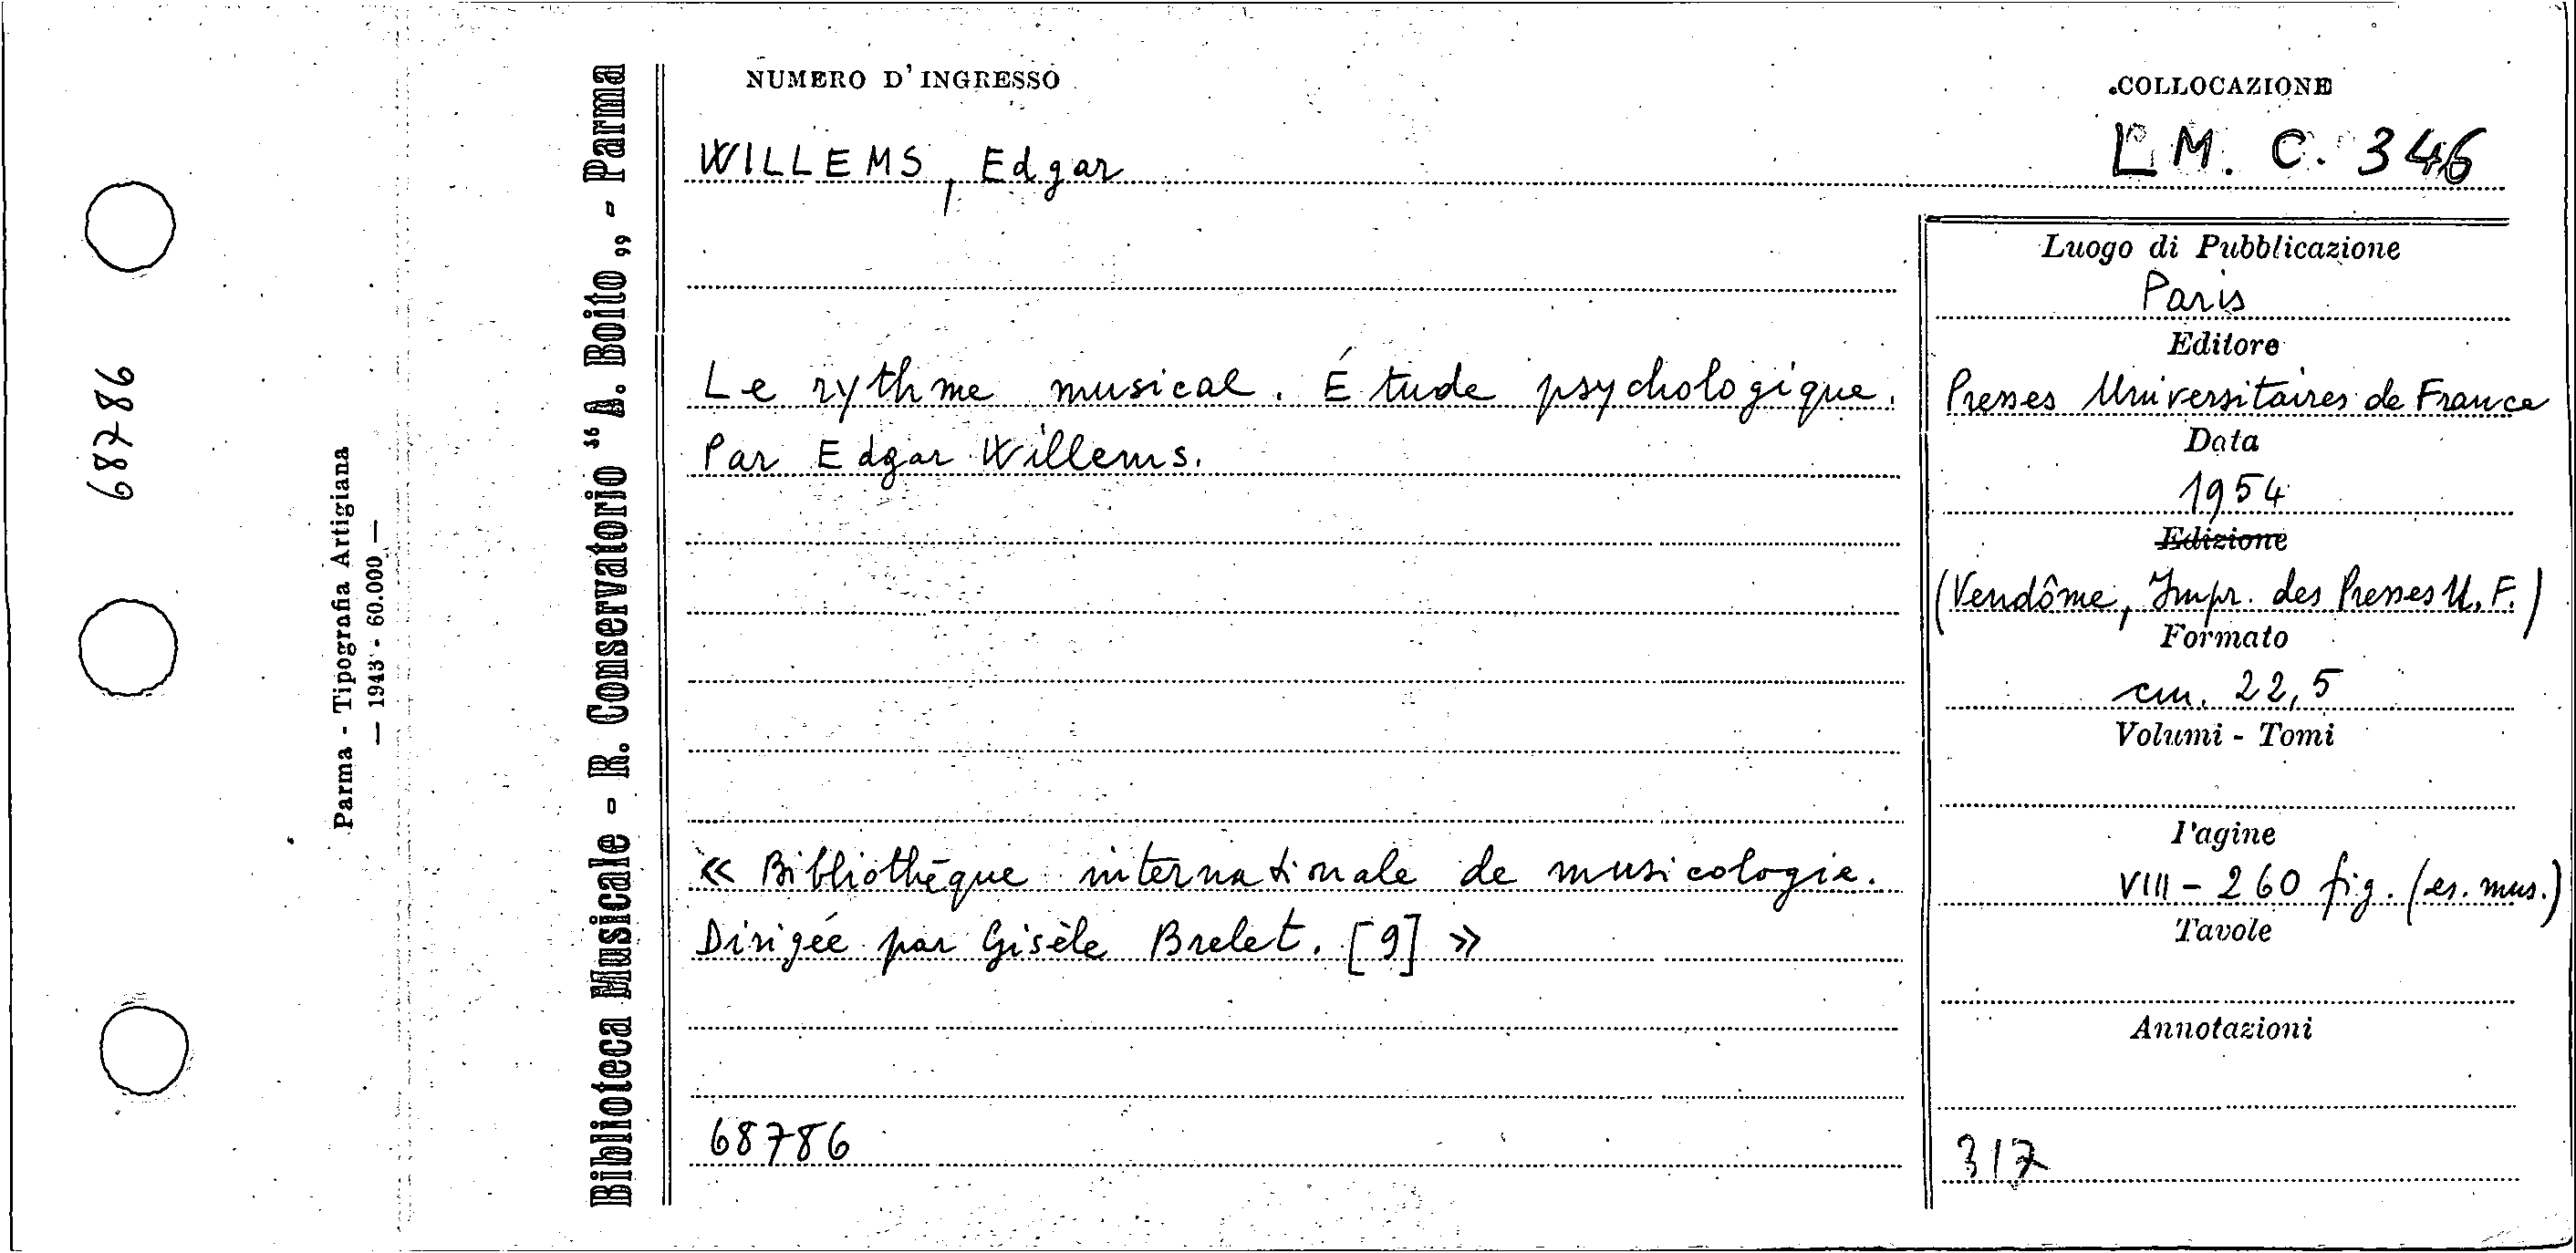 68786
Parma - Tipografia Artigiana
— 1943 - 60.000 —
Biblioteca Musicale - R. Conservatorio “A. Boito„ - Parma
NUMERO D'INGRESSO
WILLEMS, Edgar
Le rythme musical. Étude psychologique.
Par Edgar Willems.
« Bibliothèque internationale de musicologie.
Dirigée par Gisèle Brelet. [9] »
68786
COLLOCAZIONE
L M. C. 346
Luogo di Pubblicazione
Paris
Editore
Presses Universitaires de France
Data
1954
Edizione
(Vendôme, Impr. des Presses U. F.)
Formato
cm. 22,5
Volumi - Tomi
Pagine
VIII - 260 fig. (es. mus.)
Tavole
Annotazioni
317